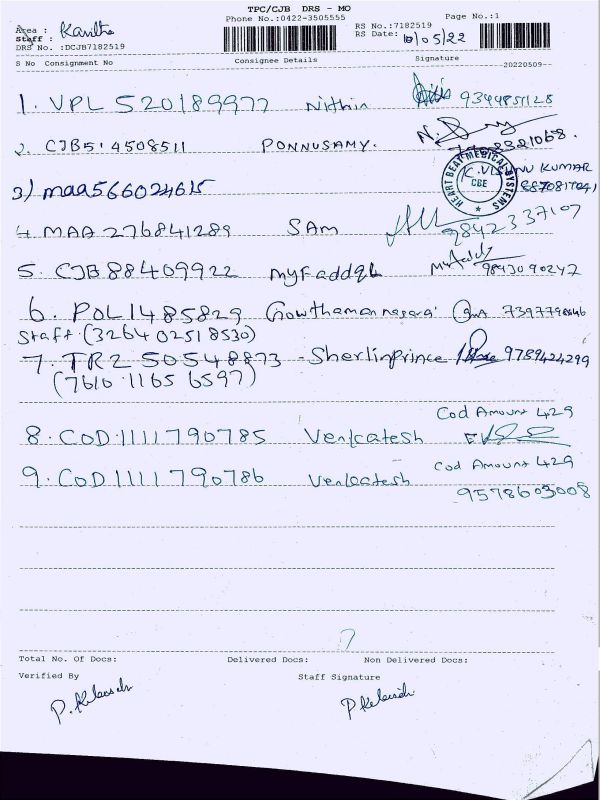 TPC/CJB DRS - MO
Phone No.:0422-3505555
Page No.:1
Area : Kavitha
RS No.:7182519
Staff :
RS Date: 10/05/22
DRS No. :DCJB7182519
S No Consignment No Consignee Details Signature
20220509--
1. VPL 520189977 Nithin 9344851128
2. CJB514508511 PONNUSAMY.
3) maa566024615 K. VISHNU KUMAR
HEART BEAT MEDICAL SYSTEMS CBE
4. MAA 276841289 SAM 9842337107
5. CJB88409922 9843090247
6. POL1485829
Staff (326402518530)
7. TR250548873 - SherlinPrince 9789424299
(7610 1165 6597)
Cod Amount 429
8. COD1111790785 Venkatesh
Cod Amount 429
9. COD1111790786 Venkatesh
9578603008
Total No. Of Docs: Delivered Docs: Non Delivered Docs:
Verified By Staff Signature